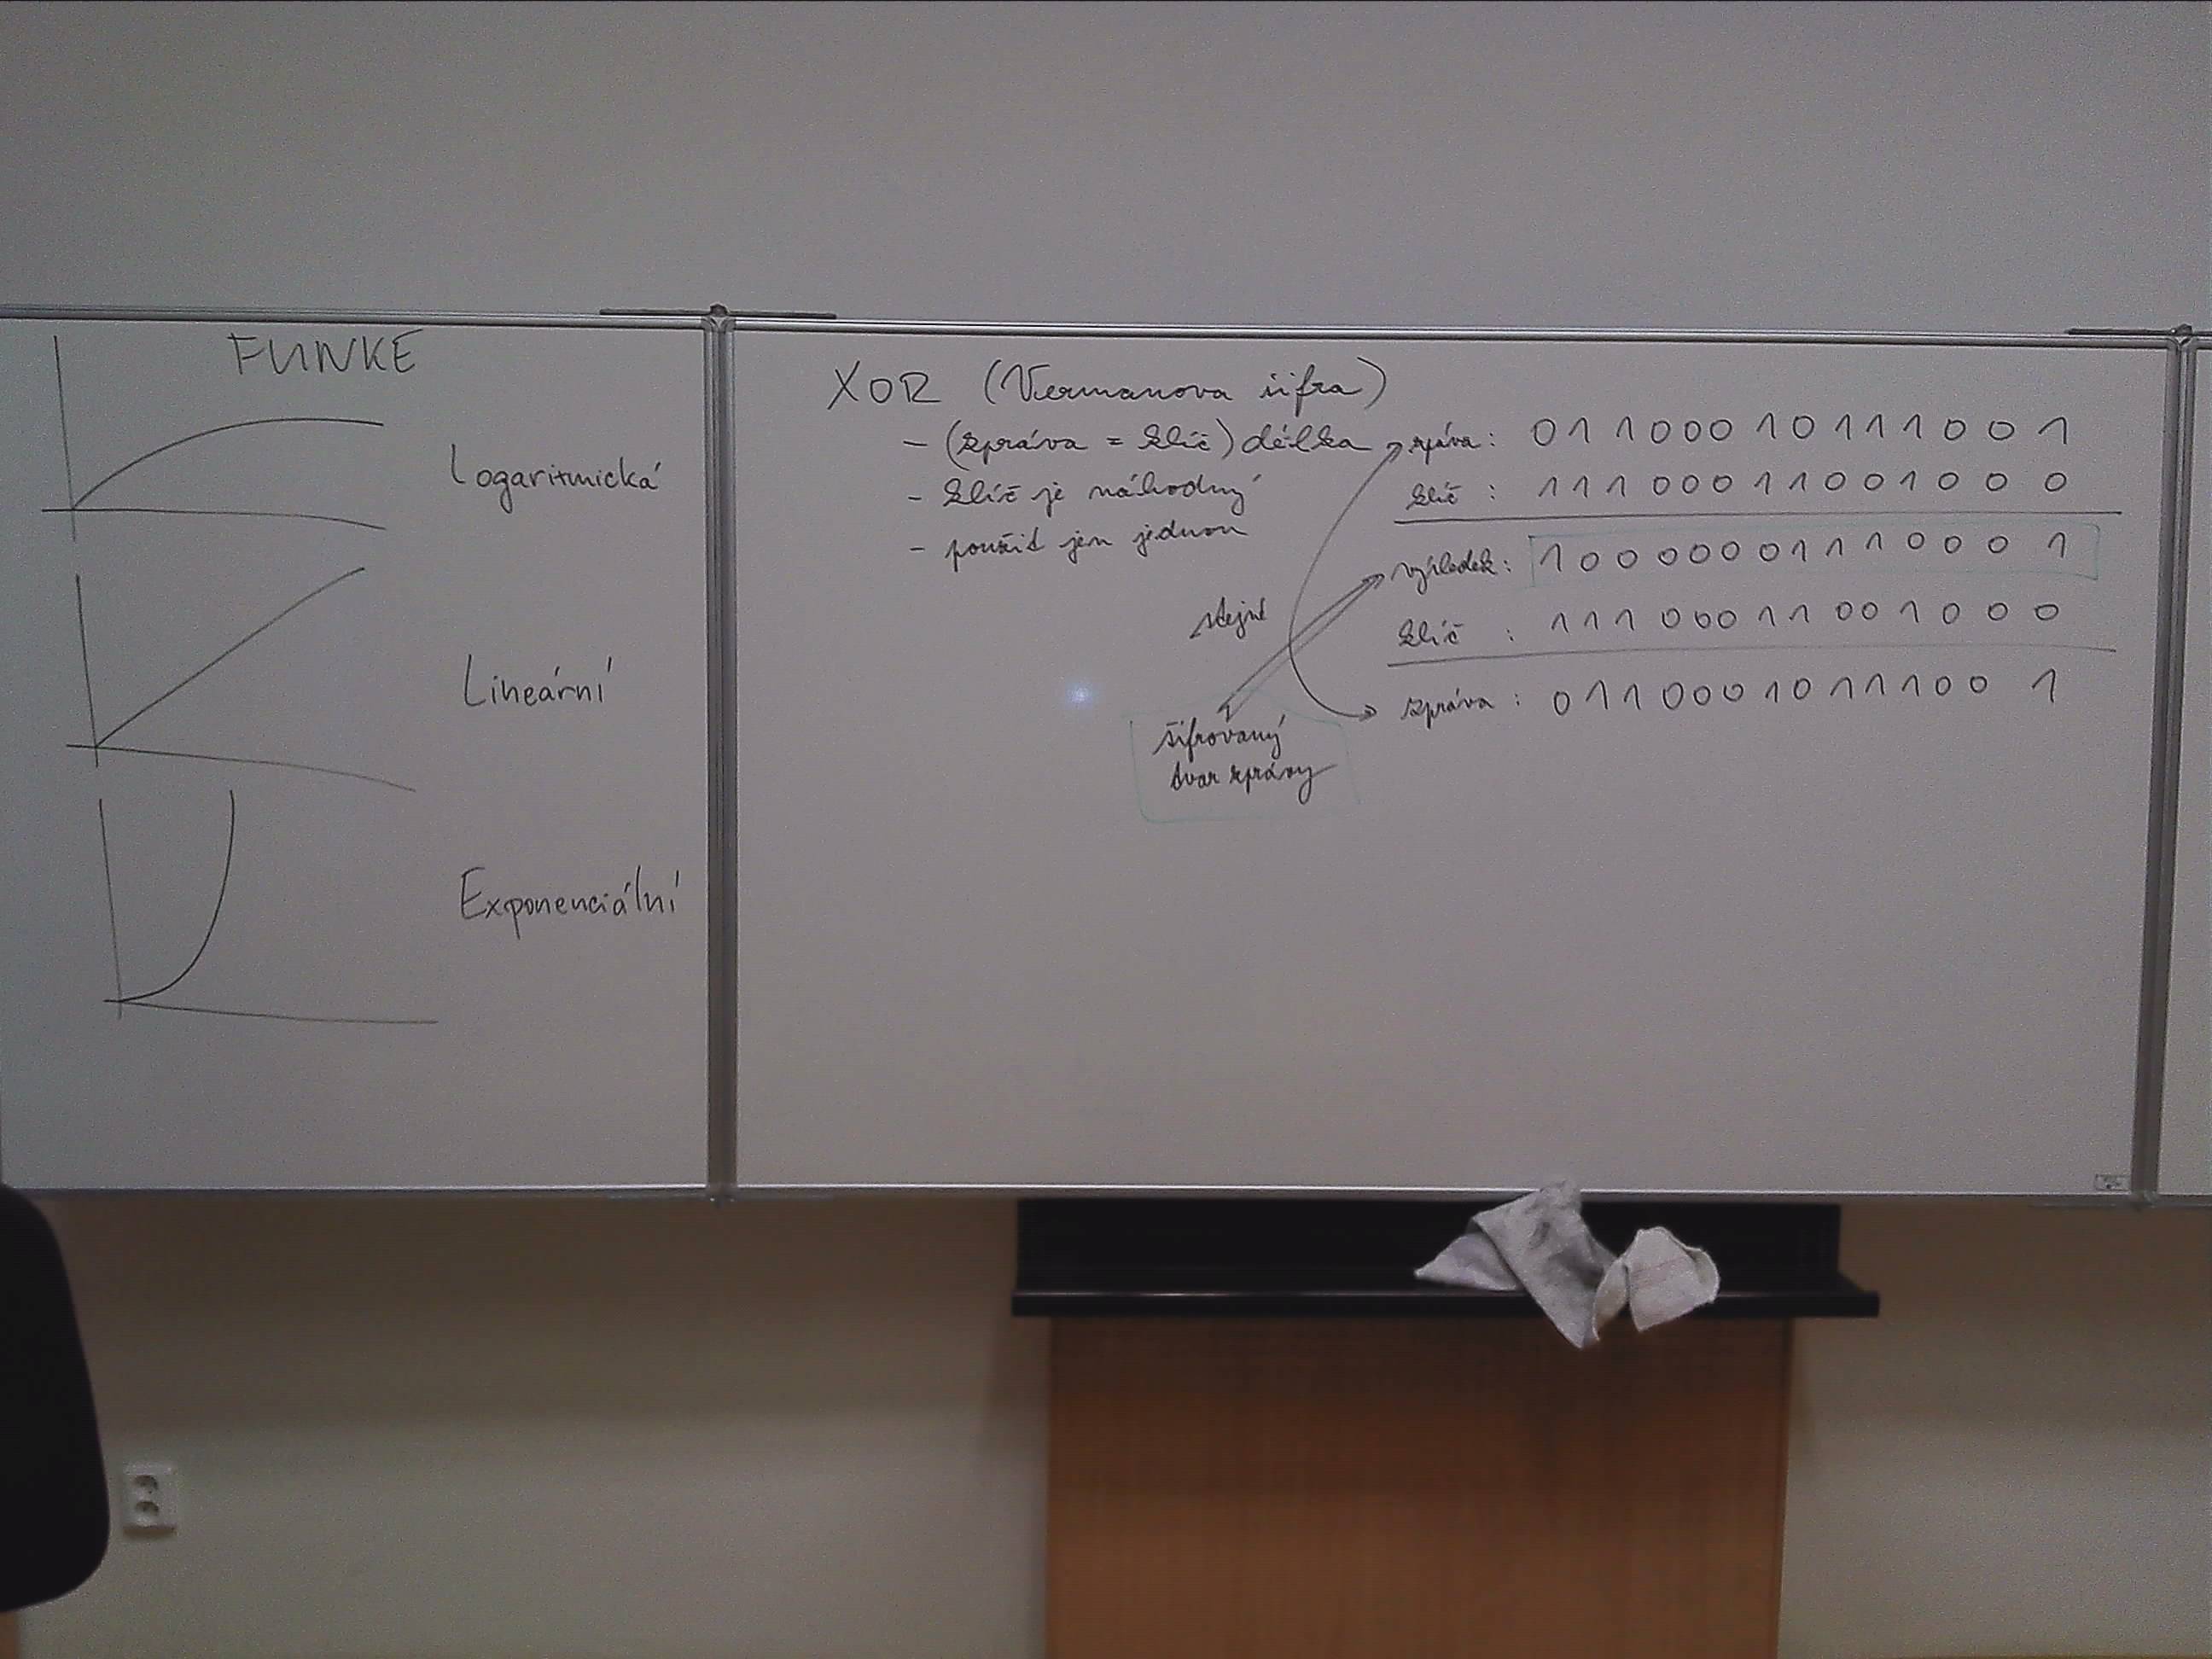 FUNKE
Logaritmická
Lineární
Exponenciální
XOR (Vermanova šifra)
- (zpráva = klíč) délka
- klíč je náhodný
- použít jen jednou
zpráva: 01100010111001
klíč : 11100011001000
výsledek: 10000001110001
klíč : 11100011001000
zpráva : 01100010111001
stejné
šifrovaný
tvar zprávy